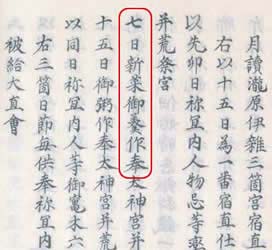 月讀瀧原伊雜三箇宮宿直
右以十五日為一番宿直仕
以先卯日祢宜内人物忌等率
并荒祭宮
七日新菜御羹作奉太神宮并
十五日御粥作奉太神宮并荒
以同日祢宜内人等御竃木六
右三箇日節毎供奉祢宜内
被給大直會